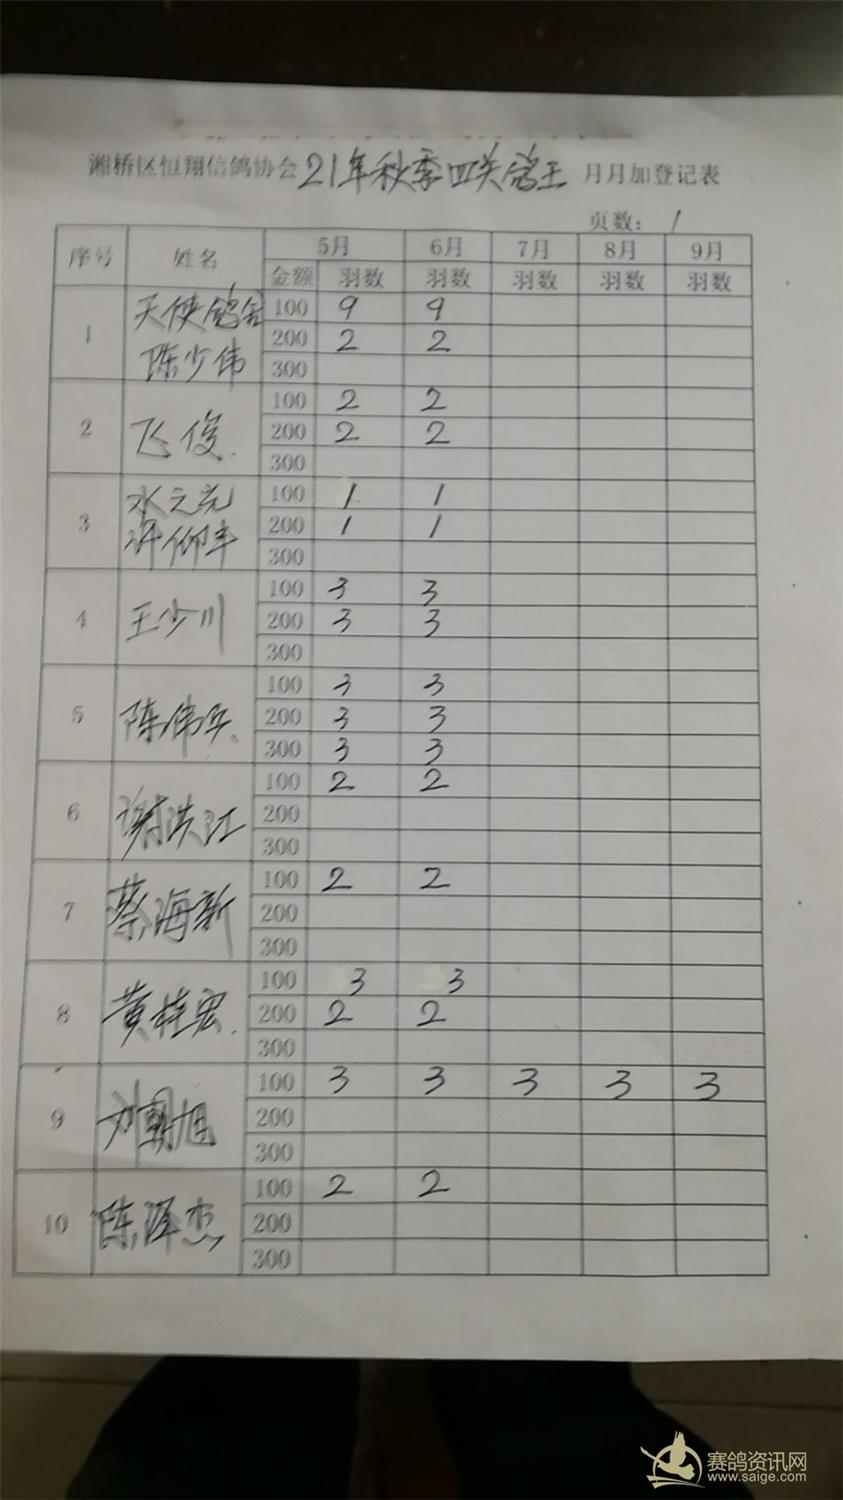 湘桥区恒翔信鸽协会21年秋季四关鸽王月月加登记表
页数：1
序号 姓名 5月 6月 7月 8月 9月
金额 羽数 羽数 羽数 羽数 羽数
1 天使鸽舍 100 9 9
陈少伟 200 2 2
300
2 飞俊 100 2 2
200 2 2
300
3 100 1 1
200 1 1
300
4 王少川 100 3 3
200 3 3
300
5 陈伟兵 100 3 3
200 3 3
300 3 3
6 谢洪江 100 2 2
200
300
7 蔡海新 100 2 2
200
300
8 黄桂宏 100 3 3
200 2 2
300
9 100 3 3 3 3 3
200
300
10 陈泽杰 100 2 2
200
300
赛鸽资讯网
www.saige.com